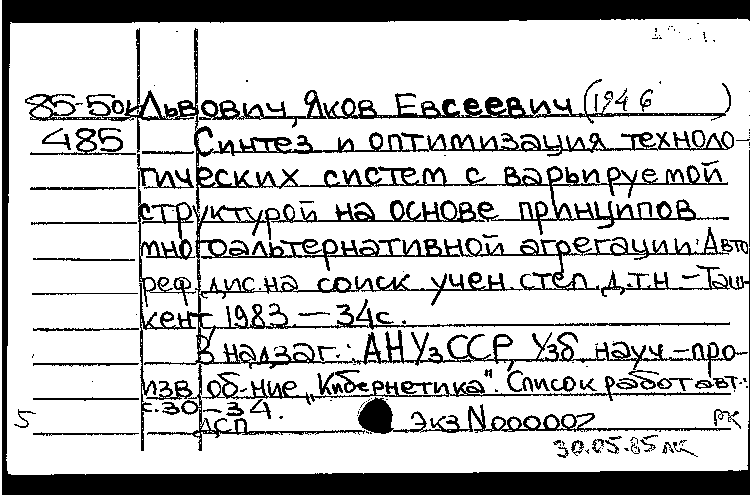 85-50к Львович, Яков Евсеевич (1946 )
485 Синтез и оптимизация техноло-
гических систем с варьируемой
структурой на основе принципов
многоальтернативной агрегации: Авто
реф. дис. на соиск. учен. степ. д.т.н – Таш-
кент, 1983. – 34с.
В надзаг.: АН УзССР, Узб. науч.-про-
изв. об-ние „Кибернетика". Список работ авт.:
с.30–34.
ДСП
5 Экз N000002 РК
30.05.85 ЛК